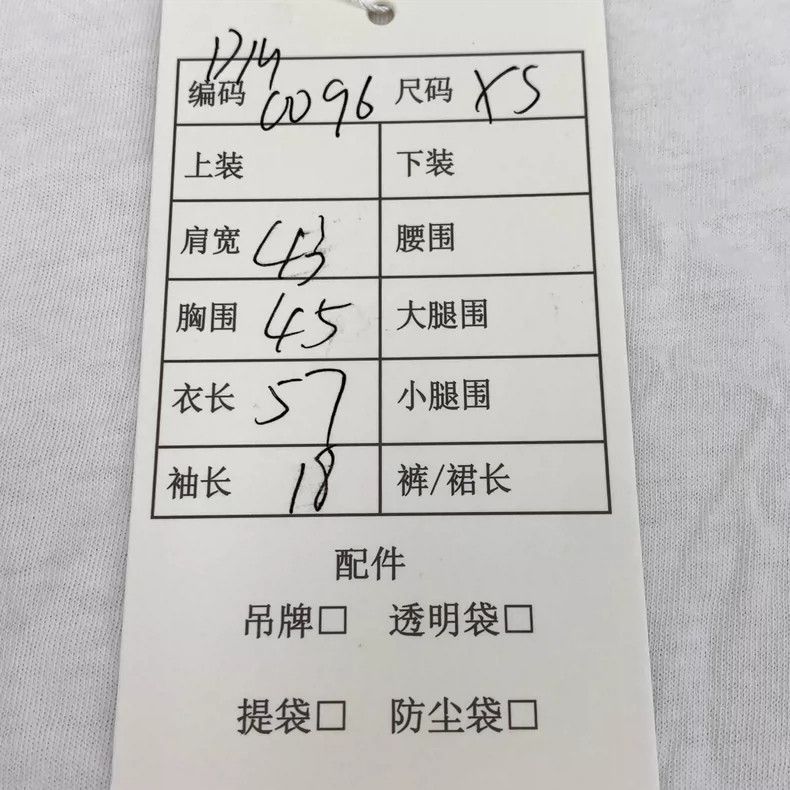 1714
编码 0096 尺码 XS
上装 下装
肩宽 43 腰围
胸围 45 大腿围
衣长 57 小腿围
袖长 18 裤/裙长
配件
吊牌□ 透明袋□
提袋□ 防尘袋□